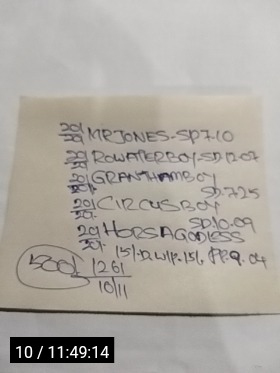 20/20/ MRJONES-SP7.10
20/20/ ROWATERBOY-SD12.07
20/20/ GRANTHAMBOY
SD.725
20/20/ CIRCUSBOY
SD.10.09
20/ HORSAGODLESS
151.
151. PP.9.04
500/
1261
10/11
10 / 11:49:14